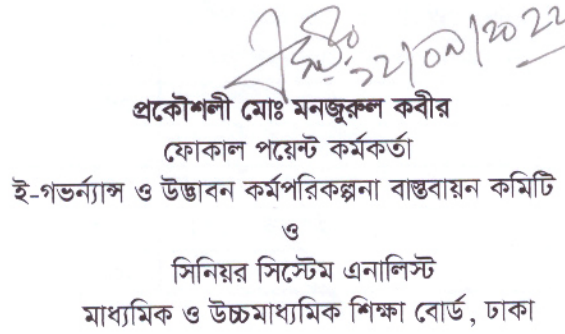 ১২/০৯/২০২২
প্রকৌশলী মোঃ মনজুরুল কবীর
ফোকাল পয়েন্ট কর্মকর্তা
ই-গভর্ন্যান্স ও উদ্ভাবন কর্মপরিকল্পনা বাস্তবায়ন কমিটি
ও
সিনিয়র সিস্টেম এনালিস্ট
মাধ্যমিক ও উচ্চমাধ্যমিক শিক্ষা বোর্ড, ঢাকা